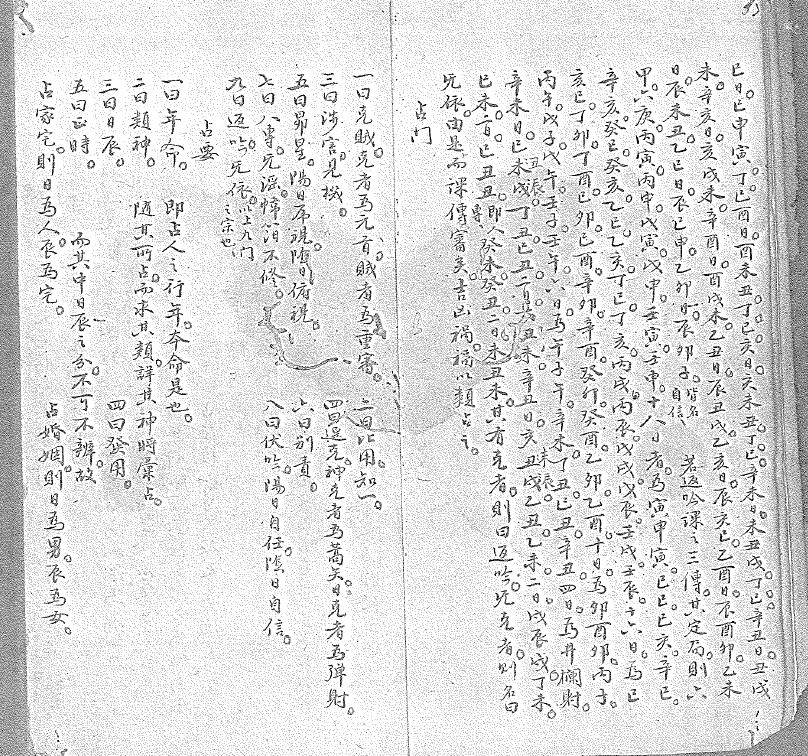 巳日巳申寅。丁巳酉日酉未丑。丁巳亥日亥未丑。丁巳辛未日未丑戌。丁巳辛丑日丑戌
未。辛亥日亥戌未。辛酉日酉戌未。乙丑日辰丑戌。乙亥日辰亥巳。乙酉日辰酉卯。乙未
日辰未丑。乙巳日辰巳申。乙卯日辰卯子。皆名自信。若返吟課之三傳。其定局。則六
甲。六庚。丙寅。丙申。戊寅。戊申。壬寅。壬申。十八日者。為寅申寅。巳巳。巳亥。辛巳。
辛亥。癸巳。癸亥。乙巳。乙亥。丁巳。丁亥。丙戌。丙辰。戊戌。戊辰。壬戌。壬辰。十六日。為巳
亥巳。丁卯。丁酉。巳卯。巳酉。辛卯。辛酉。癸卯。癸酉。乙卯。乙酉。十日。為卯酉卯。丙子。
丙午。戊子。戊午。壬子。壬午。六日。為午子午。辛未。丁丑。巳丑。辛丑。四日。為井欄射。
辛未日巳未丑辰。丁丑巳丑二日亥丑未。辛丑日亥丑戌。乙丑。乙未。二日。戌辰戌。丁未。
巳未。二日。巳丑丑。即八專。癸未。癸丑。二日。未丑未。其有克者。則曰返吟。旡克者。則名曰
旡依。由是而課傳審矣。吉凶禍福。以類占之。
占門
一曰克賊。克者為元首。賊者為重審。 二曰比用。知一。
三曰涉害。見機。 四曰遥克。神克者為蒿矢。日克者為彈射。
五曰昴星。陽日庸視。陰日俯視。 六曰別責。
七曰八專。旡滛。幃箔不修。 八曰伏吟。陽日自任。陰日自信。
九曰返吟。旡依。以上九門之宗也
占要
一曰年命。 即占人之行年。本命是也。
二曰類神。 随其所占。而求其類。詳其神將彙占。
三曰日辰。 四曰發用。
五曰正時。 而其中日辰之分。不可不辨。故
占家宅。則日為人。辰為宅。 占婚姻。則日為男。辰為女。